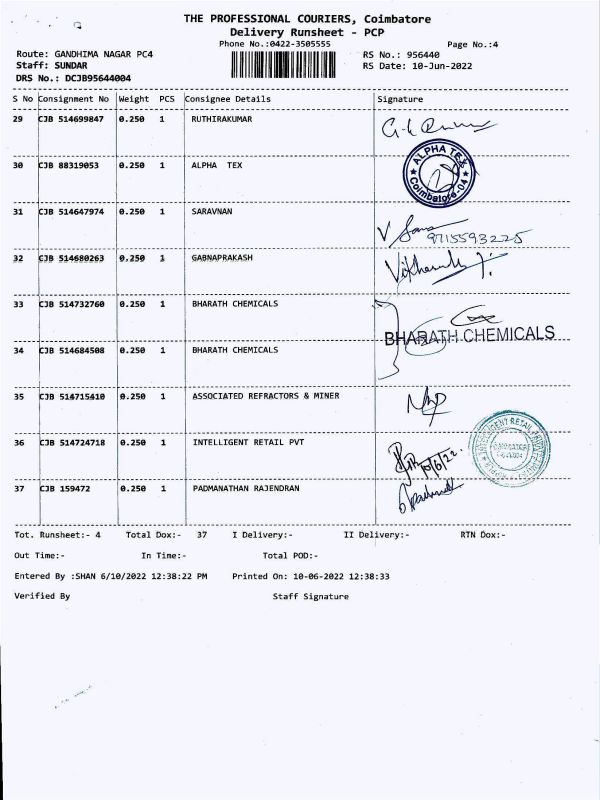 THE PROFESSIONAL COURIERS, Coimbatore
Delivery Runsheet - PCP
Phone No.:0422-3505555
Page No.:4
Route: GANDHIMA NAGAR PC4
RS No.: 956440
Staff: SUNDAR
RS Date: 10-Jun-2022
DRS No.: DCJB95644004
S No Consignment No Weight PCS Consignee Details Signature
29 CJB 514699847 0.250 1 RUTHIRAKUMAR
30 CJB 88319053 0.250 1 ALPHA TEX
ALPHA TEX
Coimbatore-04
31 CJB 514647974 0.250 1 SARAVNAN
9715593225
32 CJB 514680263 0.250 1 GABNAPRAKASH
33 CJB 514732760 0.250 1 BHARATH CHEMICALS
BHARATH CHEMICALS
34 CJB 514684508 0.250 1 BHARATH CHEMICALS
35 CJB 514715410 0.250 1 ASSOCIATED REFRACTORS & MINER
36 CJB 514724718 0.250 1 INTELLIGENT RETAIL PVT
10/6/22
37 CJB 159472 0.250 1 PADMANATHAN RAJENDRAN
Tot. Runsheet:- 4 Total Dox:- 37 I Delivery:- II Delivery:- RTN Dox:-
Out Time:- In Time:- Total POD:-
Entered By :SHAN 6/10/2022 12:38:22 PM Printed On: 10-06-2022 12:38:33
Verified By Staff Signature